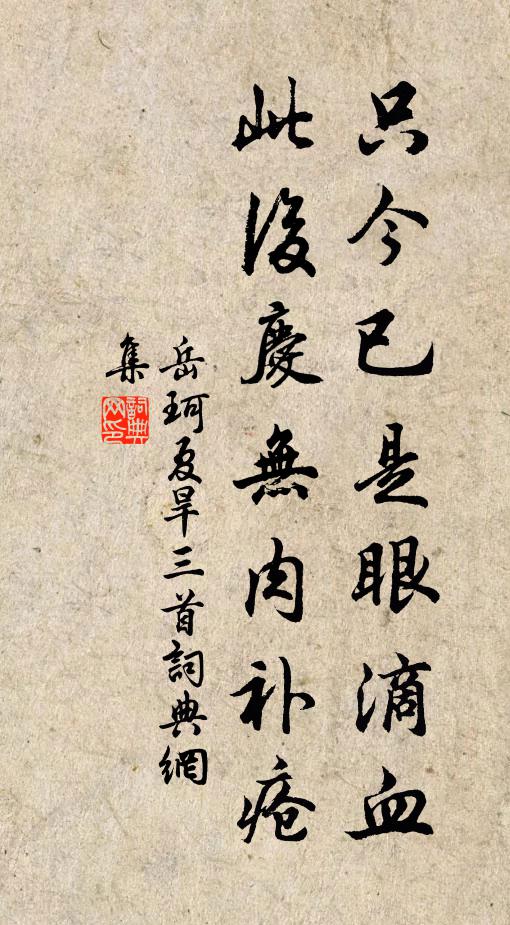 只今已是眼滴血
此後慶無肉补瘡
岳珂夏旱三首詞典網
集
詞典
网印